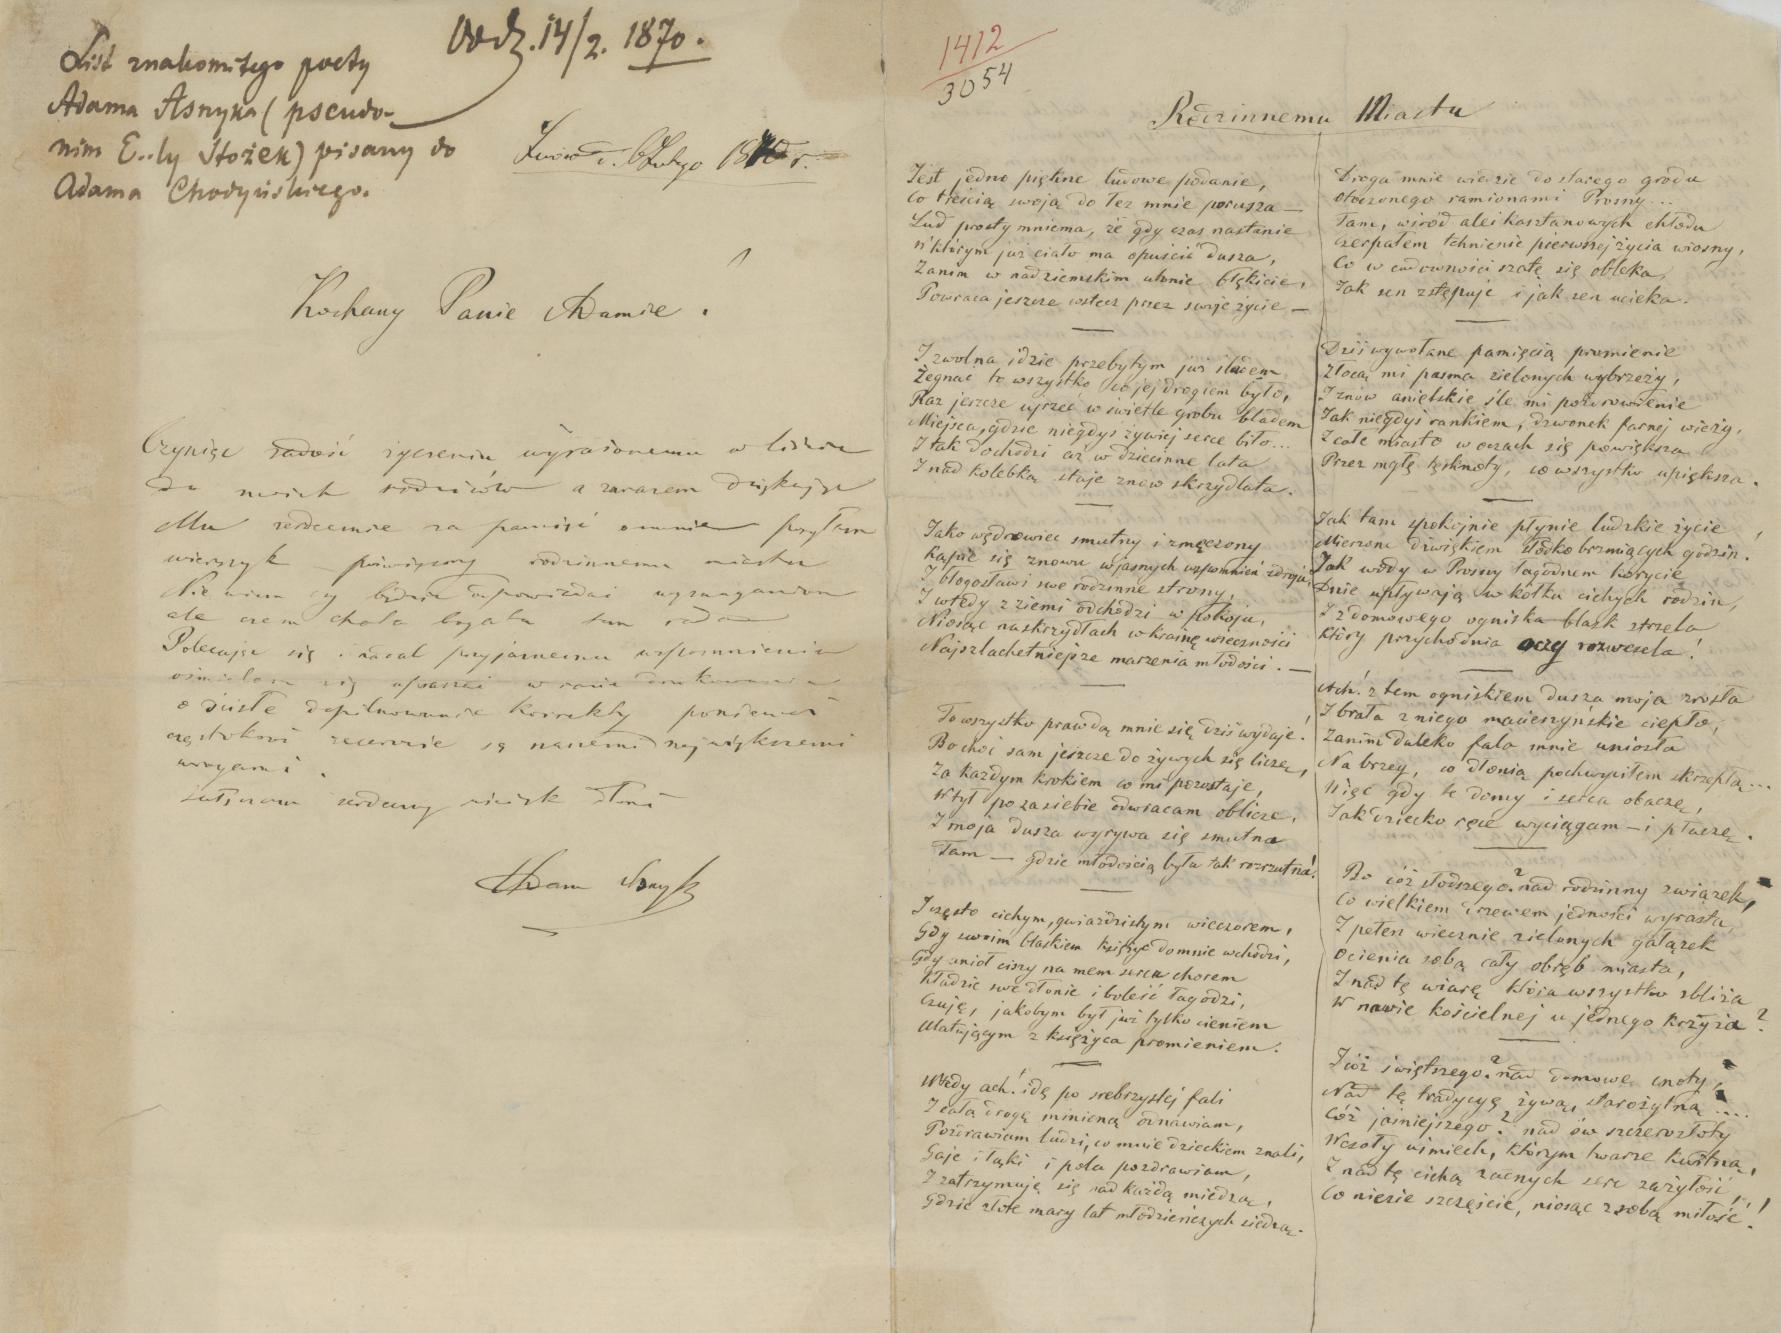 Odb. 14/2. 1870.
List znakomitego poety
Adama Asnyka (pseudo-
nim E..ly Stożek) pisany do
Adama Chodyńskiego.
Lwów d. 6 Lutego 1870 r.
Kochany Panie Adamie!
Czyniąc zadość życzeniu wyrażonemu w liście
do moich rodziców a zarazem dziękując
Mu serdecznie za pamięć o mnie przesyłam
wierszyk poświęcony rodzinnemu miastu
Nie wiem czy będzie odpowiadał wymaganiom
ale czem chata bogata tem rada
Polecając się i nadal przyjaznemu wspomnieniu
ośmielam się upraszać w razie drukowania
o ścisłe dopilnowanie korrekty ponieważ
są naszemi największemi
wrogami.
serdeczny uścisk dłoni
Adam Asnyk
1412
3054
Rodzinnemu Miastu
Jest jedno piękne ludowe podanie,
Co treścią swoją do łez mnie porusza —
Lud prosty mniema, że gdy czas nastanie
W którym już ciało ma opuścić dusza,
Zanim w nadziemskim utonie błękicie,
Powraca jeszcze wstecz przez swoje życie —
I zwolna idzie przebytym już śladem
Żegnać to wszystko co jej drogiem było,
Raz jeszcze ujrzeć w świetle grobu bladem
Miejsca, gdzie niegdyś żywiej serce biło...
I tak dochodzi aż w dziecinne lata
I nad kolebką staje znów skrzydlata.
Jako wędrowiec smutny i zmęczony
Kąpie się znowu w jasnych wspomnień zdroju,
I błogosławi swe rodzinne strony,
I wtedy z ziemi odchodzi w pokoju,
Niosąc na skrzydłach w krainę wieczności
Najszlachetniejsze marzenia młodości. —
To wszystko prawdą mnie się dziś wydaje!
Bo choć sam jeszcze do żywych się liczę,
Za każdym krokiem co mi pozostaje,
W tył poza siebie odwracam oblicze,
I moja dusza wyrywa się smutna
Tam — gdzie młodością była tak rozrzutna!
I często cichym, gwiaździstym wieczorem,
Gdy swoim blaskiem księżyc do mnie wchodzi,
Gdy anioł ciszy na mem sercu chorem
Kładzie swe dłonie i boleść łagodzi,
Czuję, jakobym był już tylko cieniem
Ulatującym z księżyca promieniem.
Wtedy ach! idę po srebrzystej fali
I całą drogę minioną odnawiam,
Pozdrawiam ludzi, co mnie dzieckiem znali,
Gaje i łąki i pola pozdrawiam,
I zatrzymuję się nad każdą miedzą,
Gdzie złote mary lat młodzieńczych siedzą.
Droga mnie wiedzie do starego grodu
Otoczonego ramionami Prosny...
Tam, wśród alei kasztanowych chłodu
Czerpałem tchnienie pierwszej życia wiosny,
Co w cudowności szatę się obleka,
Jak sen zstępuje i jak sen ucieka.
Dziś wywołane pamięcią promienie
Złocą mi pasma zielonych wybrzeży,
I znów anielskie śle mi pozdrowienie
Jak niegdyś rankiem, dzwonek farnej wieży,
I całe miasto w oczach się powiększa
Przez mgłę tęsknoty, co wszystko upiększa.
Jak tam spokojnie płynie ludzkie życie!
Mierzone dźwiękiem słodko brzmiących godzin.
Jak wody w Prosny łagodnem korycie
Dnie upływają w kółku cichych rodzin,
I z domowego ogniska blask strzela
Który przychodnia oczy rozwesela!
Ach! z tem ogniskiem dusza moja zrosła
I brała z niego macieszyńskie ciepło,
Zanim daleko fala mnie uniosła
Na brzeg, co dłonią pochwyciłem skrzepłą...
Więc gdy te domy i serca obaczę,
Jak dziecko ręce wyciągam — i płaczę.
Bo cóż słodszego? nad rodzinny związek,
Co wielkiem drzewem jedności wyrasta,
I pełen wiecznie zielonych gałązek
Ocienia sobą cały obręb miasta,
I nad tę wiarę która wszystko zbliża
W nawie kościelnej u jednego krzyża?
I cóż świętszego? nad domowe cnoty,
Nad tę tradycyę żywą, starożytną....
Cóż jaśniejszego? nad ów szczerozłoty
Wesoły uśmiech, którym twarze kwitną,
I nad tę cichą zacnych serc zażyłość,
Co niesie szczęście, niosąc z sobą miłość!